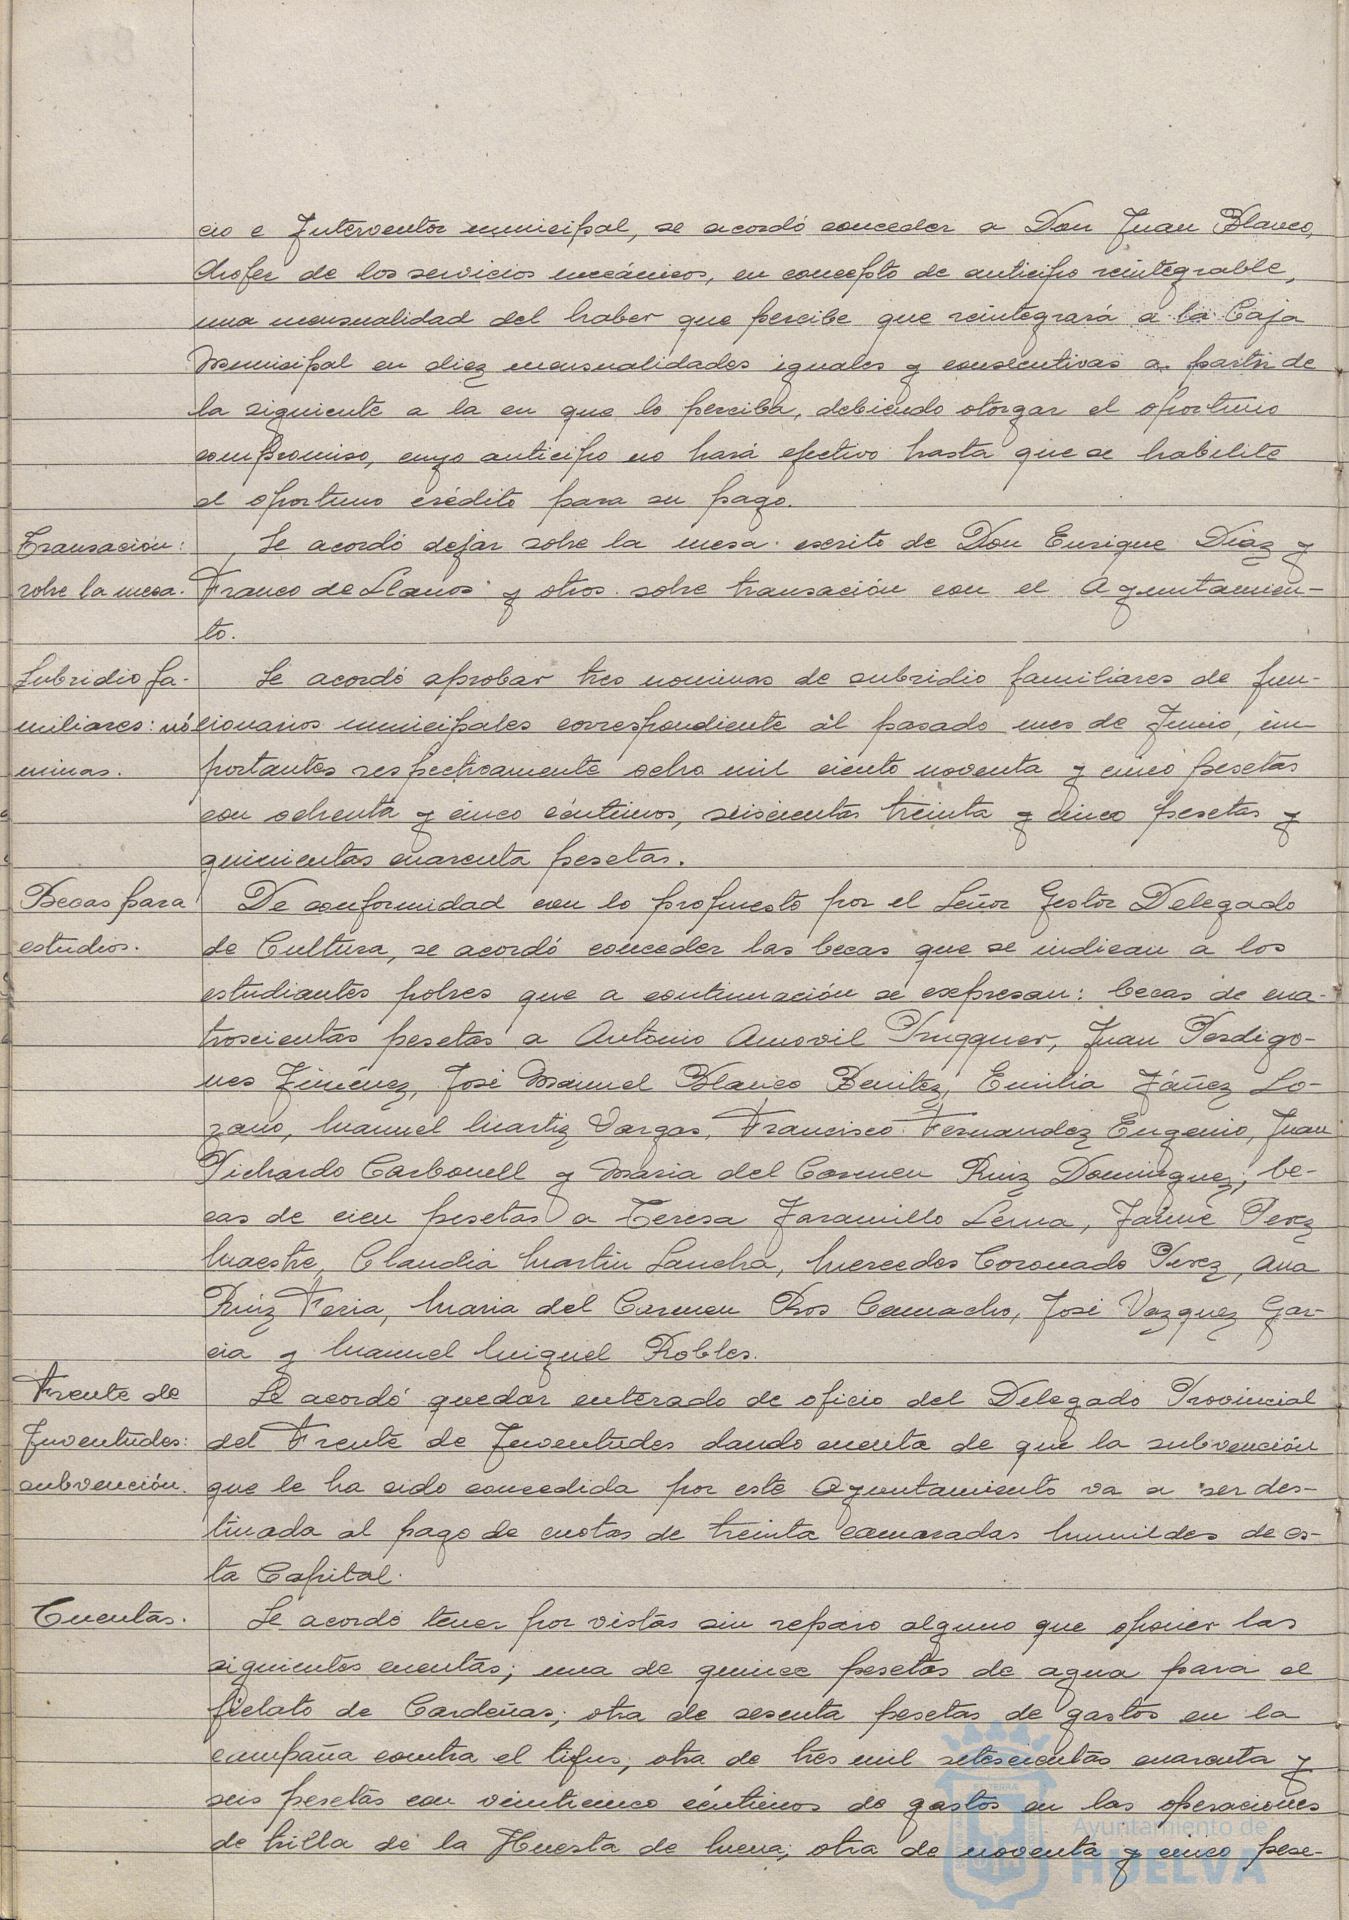 cio e Interventor municipal, se acordó conceder a Don Juan Blanco,
chofer de los servicios mecánicos, en concepto de anticipo reintegrable,
una mensualidad del haber que percibe que reintegrará a la Caja
Municipal en diez mensualidades iguales y consecutivas a partir de
la siguiente a la en que lo perciba, debiendo otorgar el oportuno
compromiso, cuyo anticipo no hará efectivo hasta que se habilite
el oportuno crédito para su pago.
Transación:
sobre la mesa.
Se acordó dejar sobre la mesa escrito de Don Enrique Diaz y
Franco de Llanos y otros sobre transación con el Ayuntamien-
to.
Subsidio fa-
miliares: nó
minas.
Se acordó aprobar tres nominas de subsidio familiares de fun-
cionarios municipales correspondiente al pasado mes de Junio, im-
portantes respectivamente ocho mil ciento noventa y cinco pesetas
con ochenta y cinco céntimos, seiscientas treinta y cinco pesetas y
quinientas cuarenta pesetas.
Becas para
estudios.
De conformidad con lo propuesto por el Señor Gestor Delegado
de Cultura, se acordó conceder las becas que se indican a los
estudiantes pobres que a continuación se expresan: becas de cua-
troscientas pesetas a Antonio Amovil Trugquer, Juan Perdigo-
nes Jiménez, José Manuel Blanco Benitez, Emilia Yáñez Lo-
zano, Manuel Martiz Vargas, Francisco Fernandez Eugenio, Juan
Pichardo Carbonell y Maria del Carmen Ruiz Dominguez; be-
cas de cien pesetas a Teresa Jaramillo Lema, Jaime Perez
Maestre, Claudia Martin Sancha, Mercedes Coronado Perez, Ana
Ruiz Feria, Maria del Carmen Ros Camacho, José Vazquez Gar-
cia y Manuel Miguel Robles.
Frente de
Juventudes:
subvención.
Se acordó quedar enterado de oficio del Delegado Provincial
del Frente de Juventudes dando cuenta de que la subvención
que le ha sido concedida por este Ayuntamiento va a ser des-
tinada al pago de cuotas de treinta camaradas humildes de es-
ta Capital.
Cuentas.
Se acordó tener por vistas sin reparo alguno que oponer las
siguientes cuentas; una de quince pesetas de agua para el
fielato de Cardeñas; otra de sesenta pesetas de gastos en la
campaña contra el tifus; otra de tres mil setescientas cuarenta y
seis pesetas con veinticinco céntimos de gastos en las operaciones
de trilla de la Huerta de Mena; otra de noventa y cinco pese-
Ayuntamiento de
HUELVA